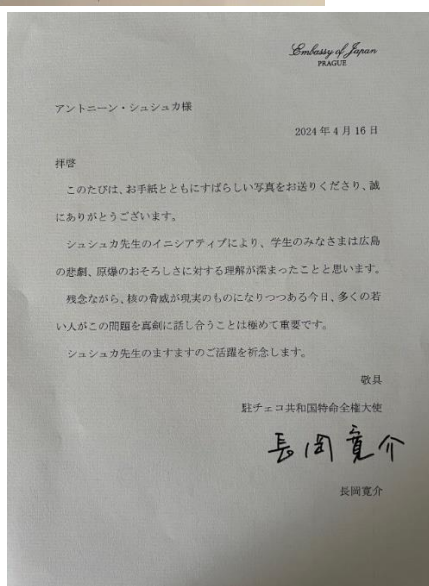 Embassy of Japan
PRAGUE
アントニーン・シュシュカ様
2024年4月16日
拝啓
このたびは、お手紙とともにすばらしい写真をお送りくださり、誠
にありがとうございます。
シュシュカ先生のイニシアティブにより、学生のみなさまは広島
の悲劇、原爆のおそろしさに対する理解が深まったことと思います。
残念ながら、核の脅威が現実のものになりつつある今日、多くの若
い人がこの問題を真剣に話し合うことは極めて重要です。
シュシュカ先生のますますのご活躍を祈念します。
敬具
駐チェコ共和国特命全権大使
長岡寛介
長岡寛介